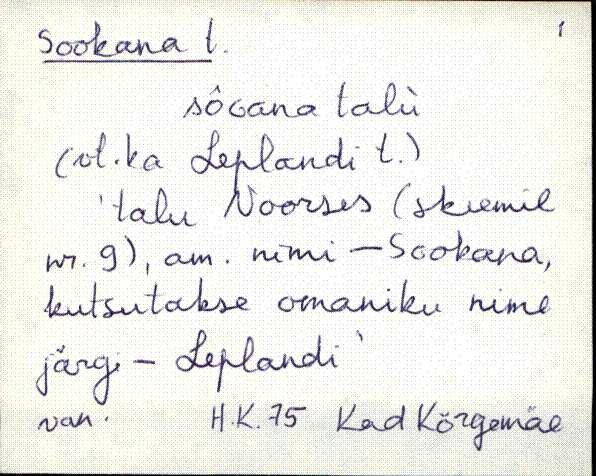 Sookana t. 1
sôoana talù
(vt. ka Leplandi t.)
'talu Noorses (skeemil
nr. 9), am. nimi – Sookana,
kutsutakse omaniku nime
järgi – Leplandi'
van. H.K. 75 Kad Kõrgemäe